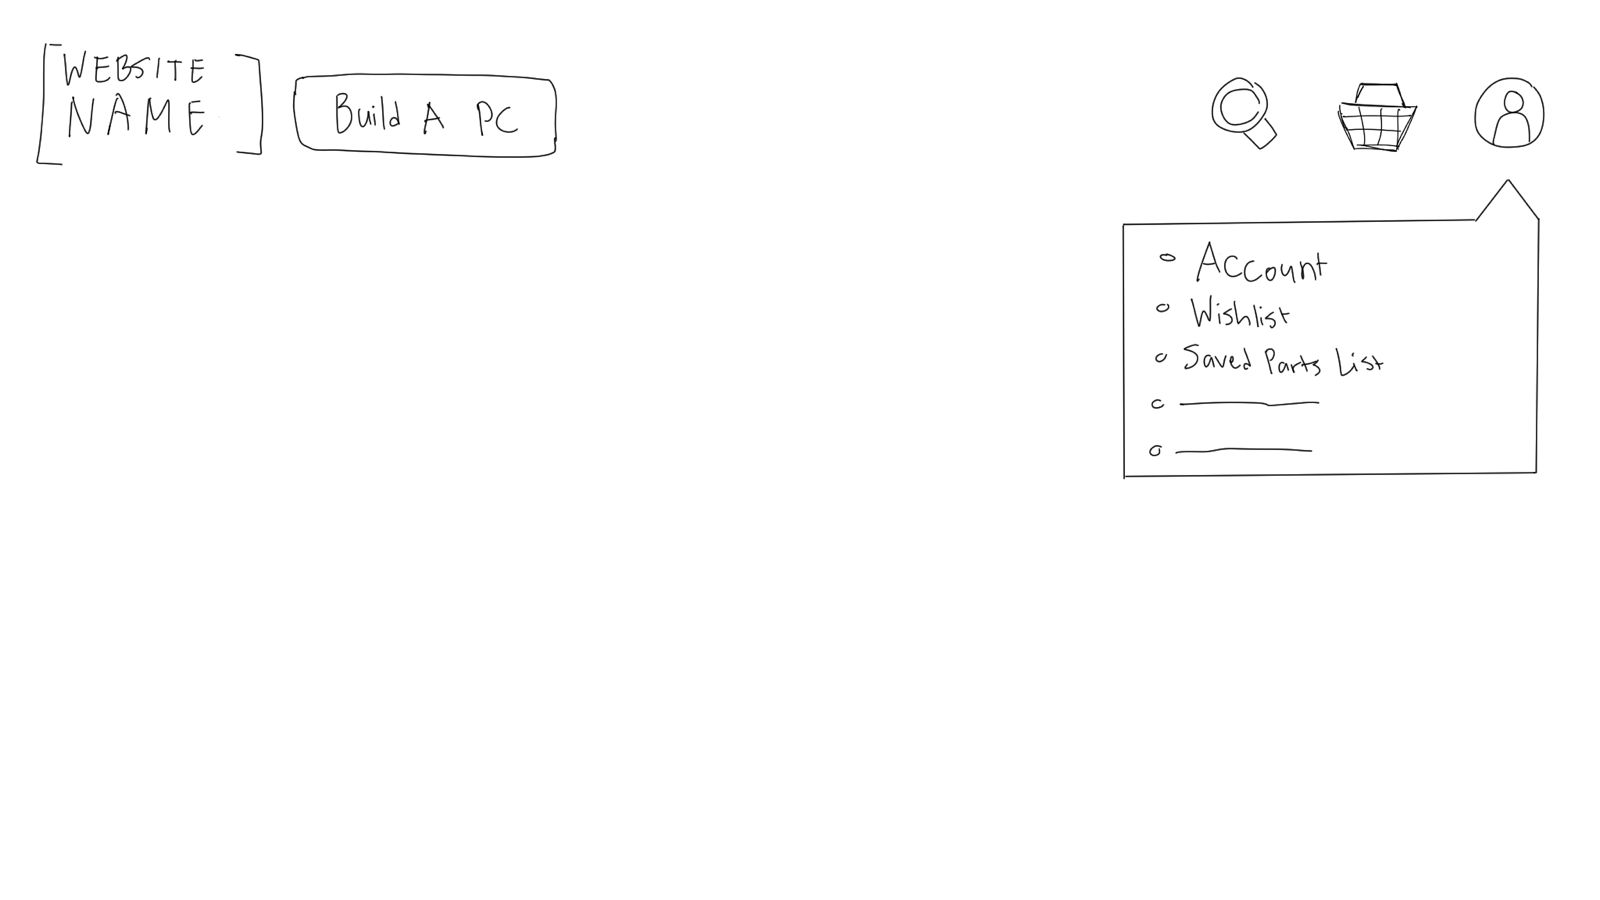 WEBSITE
NAME
Build A PC
Account
Wishlist
Saved Parts List